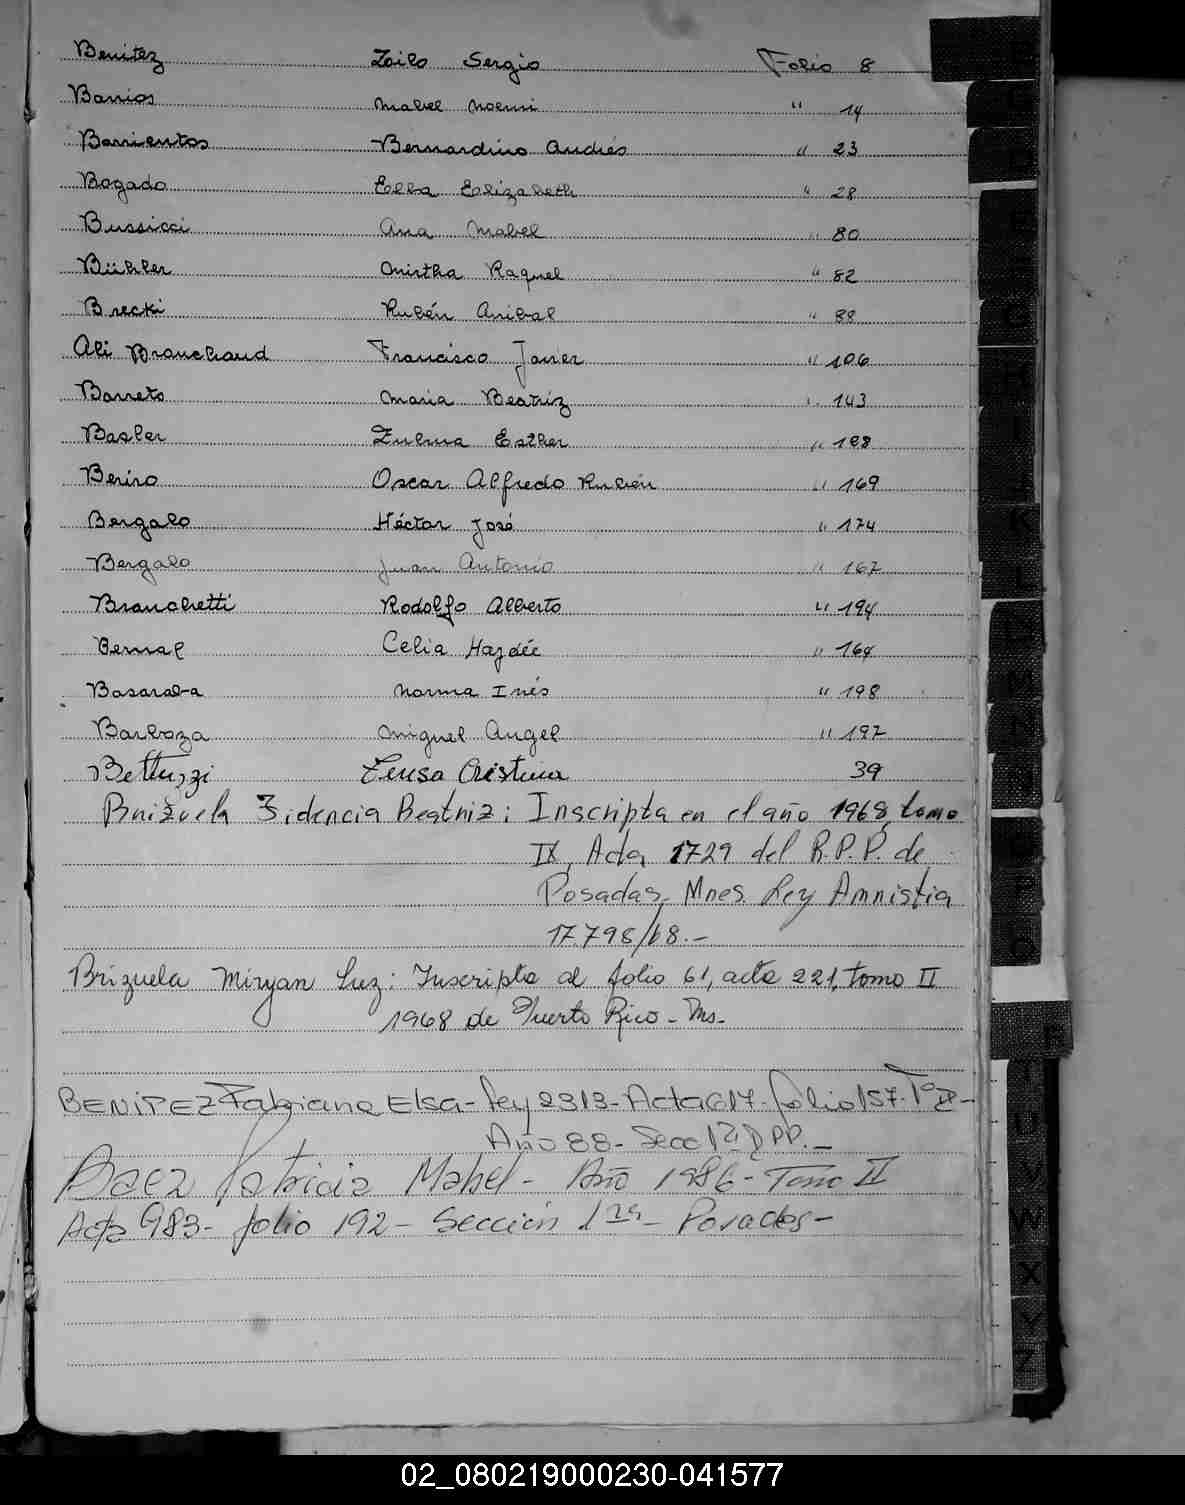 Benitez Zoilo Sergio Folio 8
Barrios Mabel Noemi " 14
Barrientos Bernardino Andrés " 23
Bogado Elba Elizabeth " 28
Bussicci Ana Mabel " 80
Bühler Mirtha Raquel " 82
Brecki Rubén Anibal " 88
Ali Branchaud Francisco Javier " 106
Barreto Maria Beatriz " 143
Basler Zulma Esther "
Beriro Oscar Alfredo Rubén " 169
Bergalo Héctor José " 174
Bergalo Juan Antonio " 167
Branchetti Rodolfo Alberto " 194
Bernal Celia Haydée " 164
Basaraba Norma Inés " 198
Barboza Miguel Angel " 197
Bettuzzi Cristina 39
Brizuela Fidencia Beatriz: Inscripta en el año 1968, tomo
IX, Acta 1729 del R.P.P. de
Posadas, Mnes. Ley Amnistia
17.795/68.-
Brizuela Miryan Luz: Inscripta al folio 61, acta 221, tomo II
1968 de Puerto Rico - Ms.-
BENITEZ Fabiana Elsa - Ley 2313 - Acta 617 - folio 157 - Tº II -
Año 88 - Secc 1ª D PP. -
Baez Patricia Mabel - Año 1986 - Tomo II
Acta 983 - folio 192 - Sección 1ra - Posadas -
E
F
G
H
I
K
L
M
N
O
P
Q
T
U
V
W
X
Y
Z
02_080219000230-041577